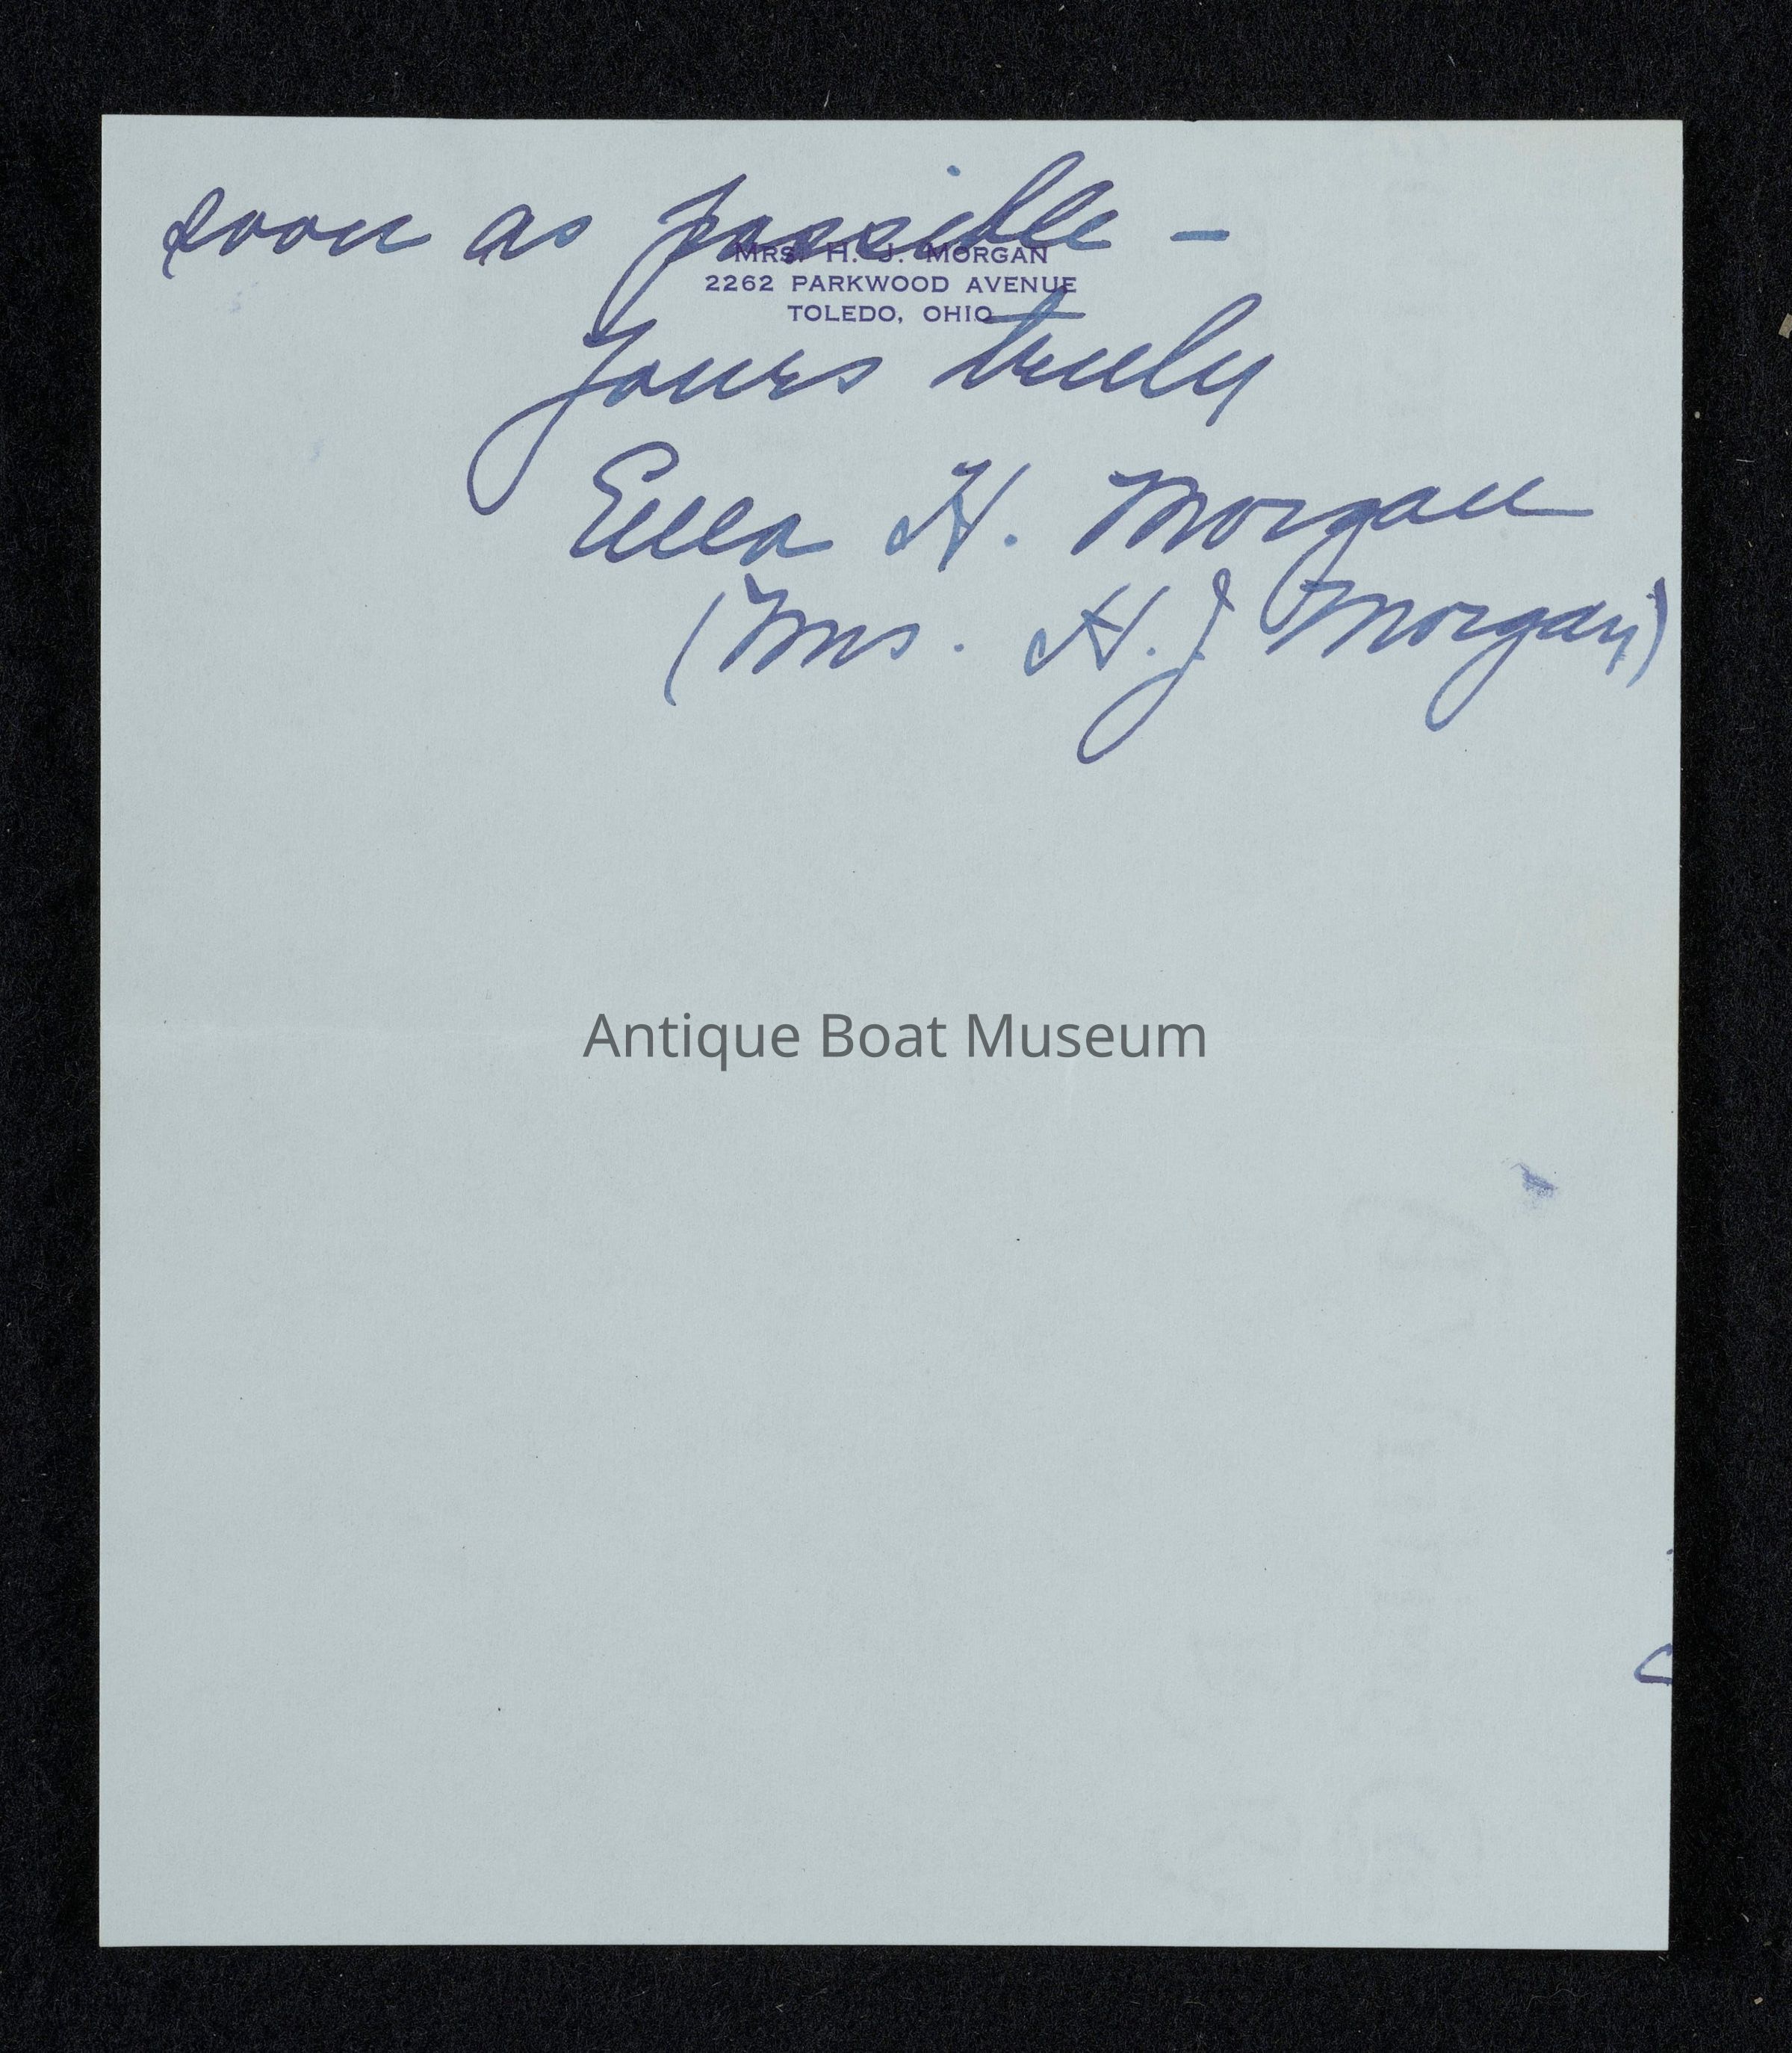 soon as possible –
MRS. H. J. MORGAN
2262 PARKWOOD AVENUE
TOLEDO, OHIO
Yours truly
Ella H. Morgan
(Mrs. H. J Morgan)
Antique Boat Museum